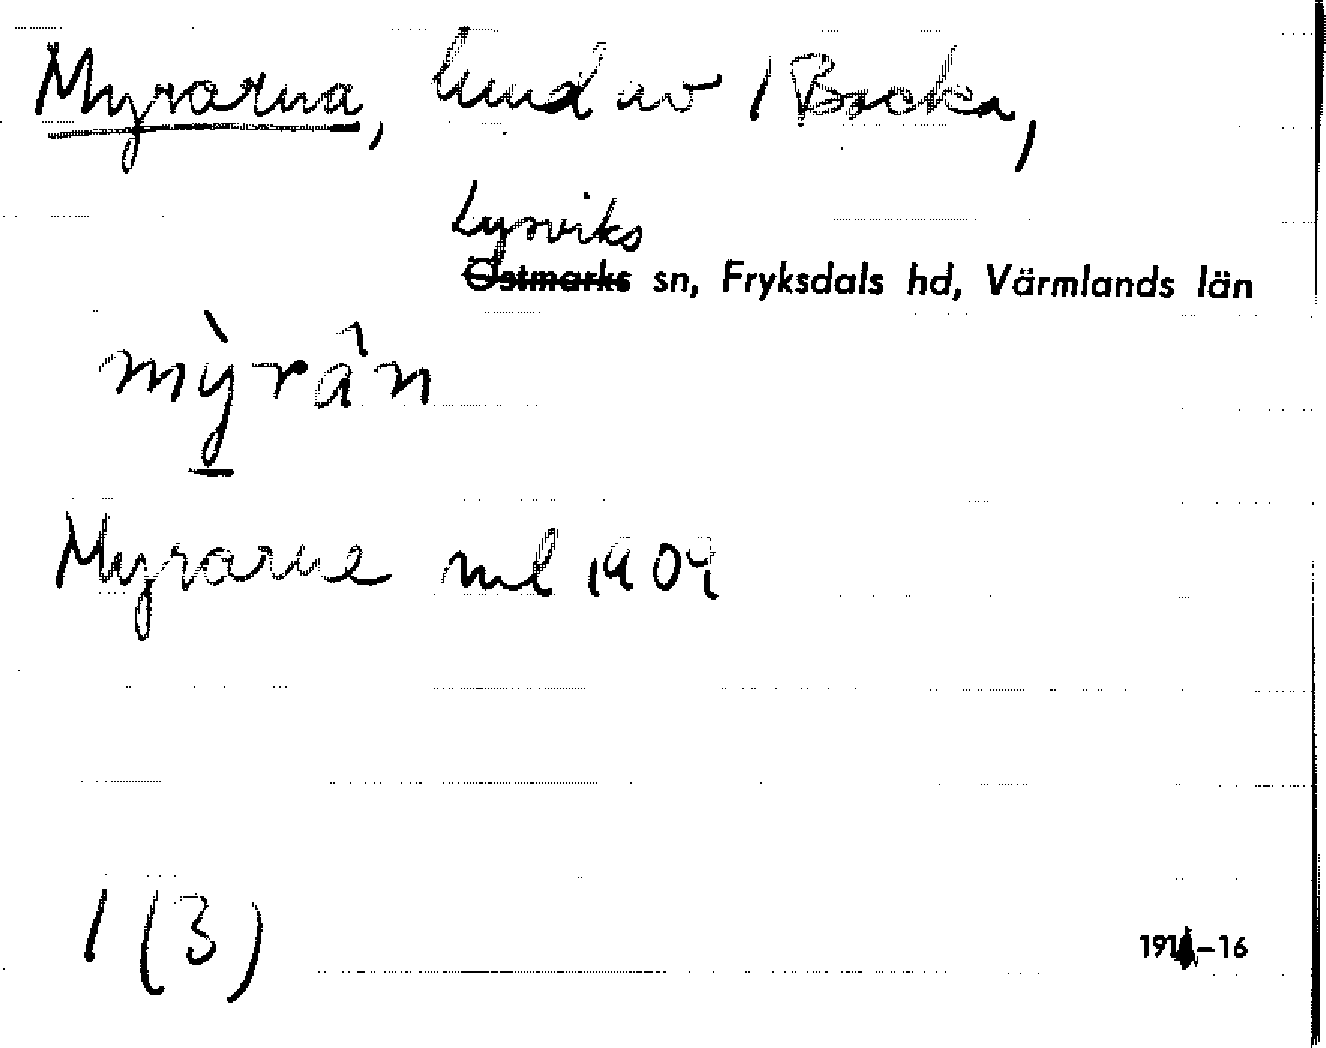 Myrarna, hmd av 1 Backa,
Lysviks
Östmarks sn, Fryksdals hd, Värmlands län
mỳrân
Myrarne ml 1909
1 (3)
-16